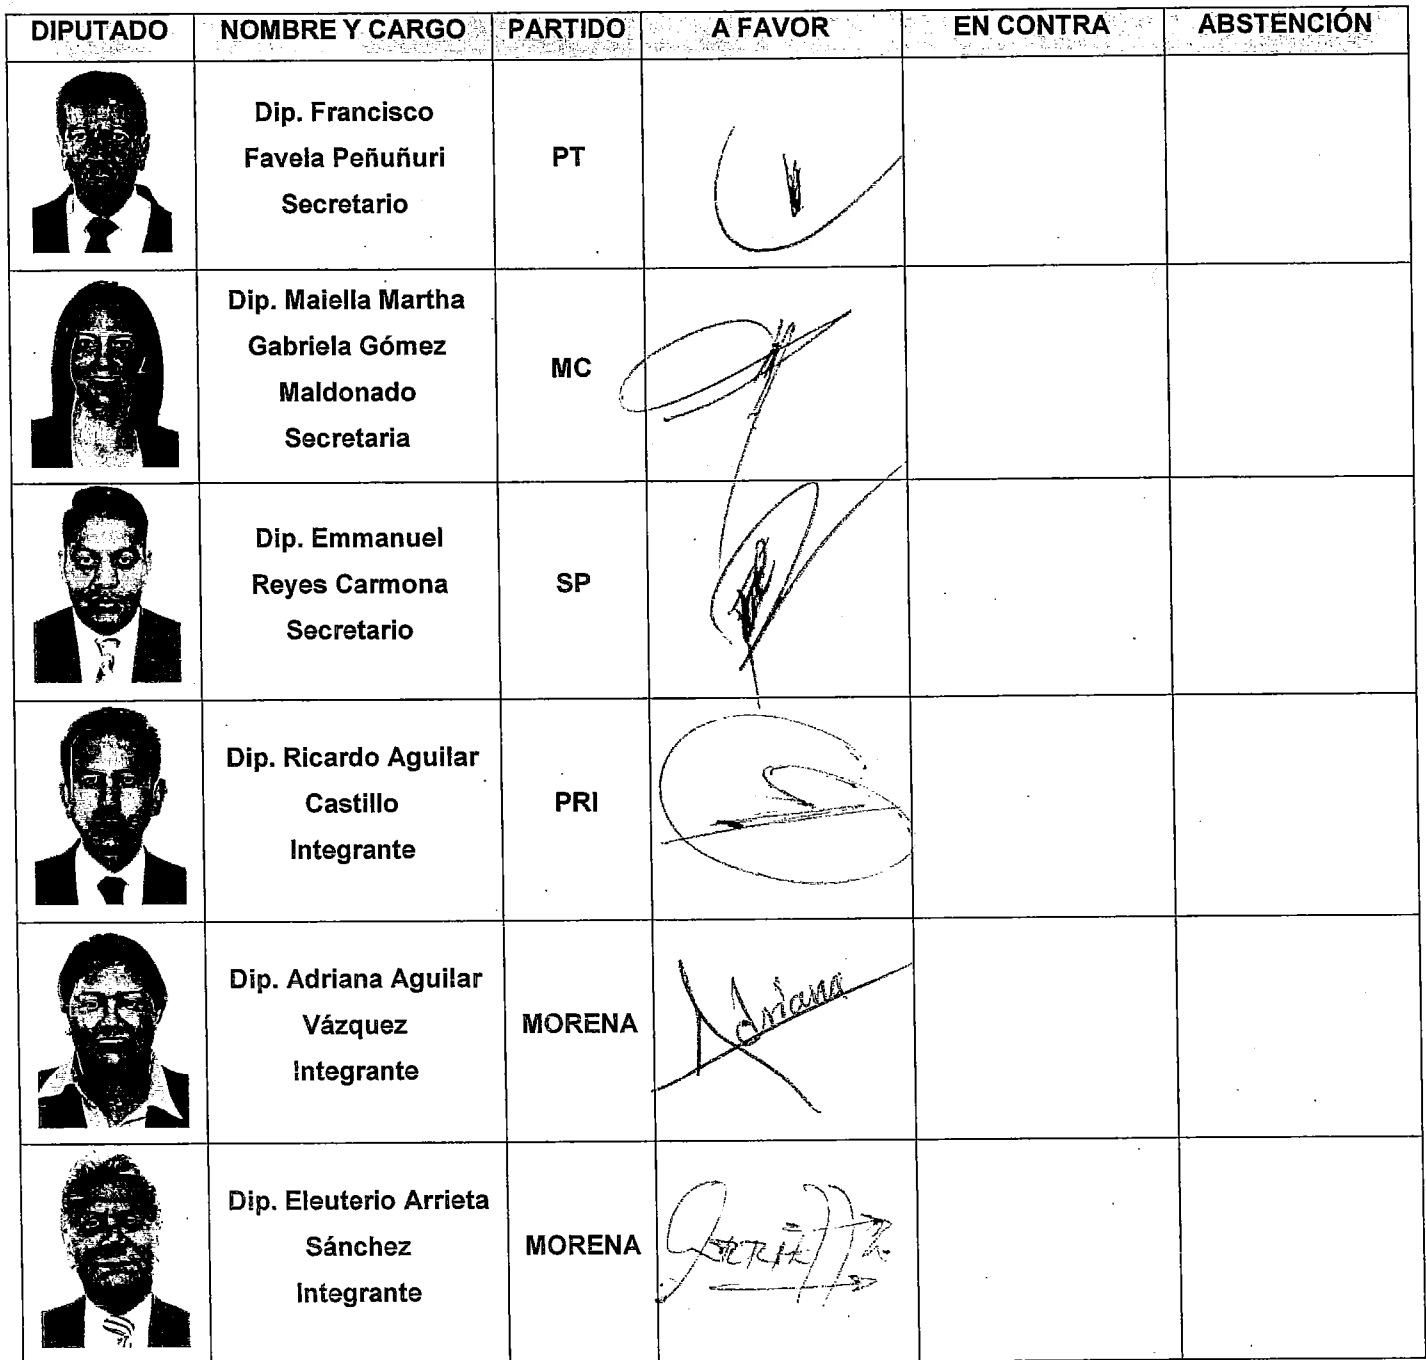 DIPUTADO NOMBRE Y CARGO PARTIDO A FAVOR EN CONTRA ABSTENCIÓN
Dip. Francisco
Favela Peñuñuri PT
Secretario
Dip. Maiella Martha
Gabriela Gómez
MC
Maldonado
Secretaria
Dip. Emmanuel
Reyes Carmona SP
Secretario
Dip. Ricardo Aguilar
Castillo PRI
Integrante
Dip. Adriana Aguilar
Vázquez MORENA Adriana
Integrante
Dip. Eleuterio Arrieta
Sánchez MORENA
Integrante